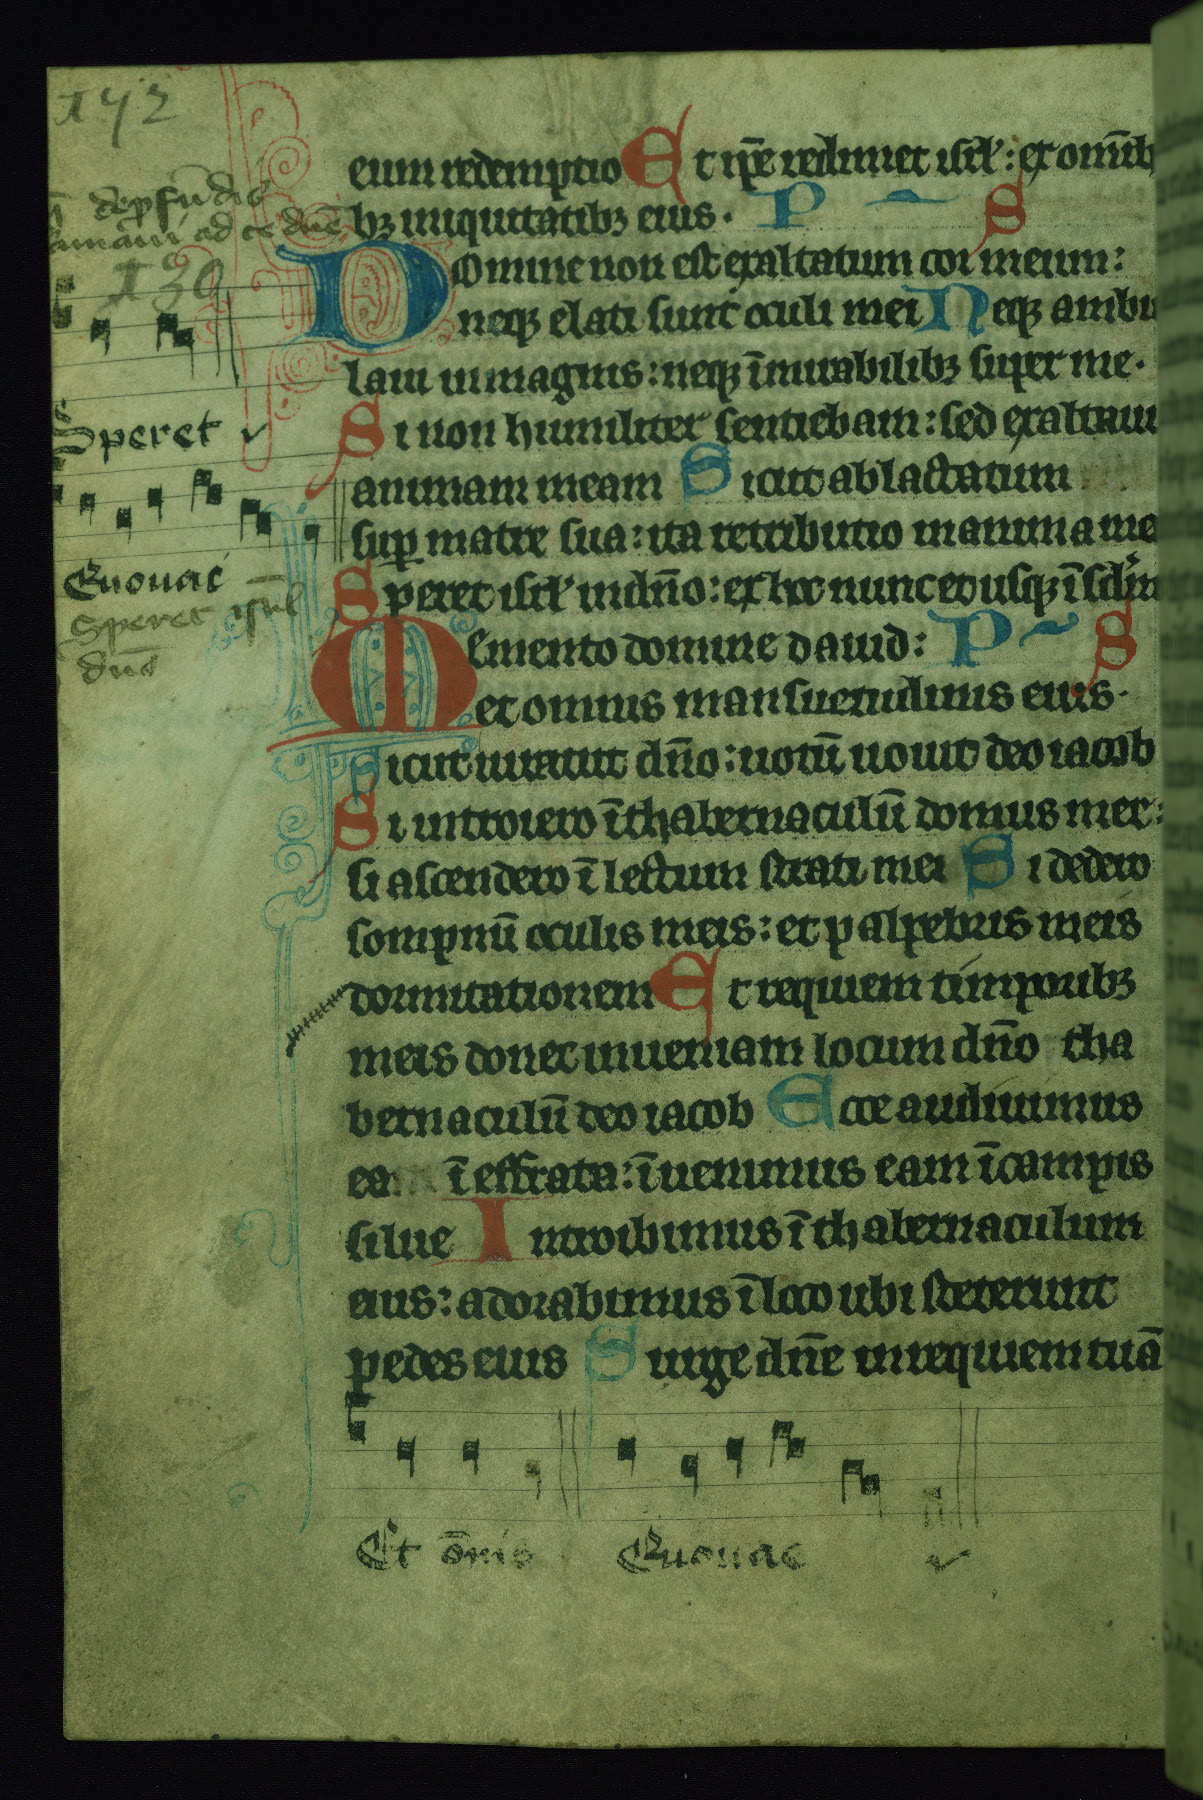 eum redemptio Et ip̄e redimet isrl̄: ex om̄ib
bꝫ iniquitatibꝫ eius. P S
Domine non est exaltatum cor meum:
neqꝫ elati sunt oculi mei Neqꝫ ambu
laui in magnis: neqꝫ ī mirabilibꝫ super me.
Si non humiliter sentiebam: sed exaltaui
animam meam Sicut ablactatum
sup̱ matre sua: ita retributio in anima me
Speret isrl̄ in dn̄o: ex hoc nunc et usqꝫ ī sclm̄
Memento domine dauid: P S
et omnis mansuetudinis eius.
Sicut iurauit dn̄o: uotū uouit deo iacob
Si introiero ī thabernaculū domus mee:
si ascendero ī lectum strati mei Si dedero
sompnū oculis meis: et palpebris meis
dormitationem Et requiem timporibꝫ
meis donec inueniam locum dn̄o tha
bernaculū deo iacob Ecce audiuimus
eam ī effrata: ī uenimus eam ī campis
silue Introibimus ī thabernaculum
eius: adorabimus ī loco ubi steterunt
pedes eius Surge dn̄e in requiem tuā
Et ōnis Euouae
de p̱fūdis
clamaui ad te dn̄e
130
Speret
Euouae
Speret isrl̄
dn̄o